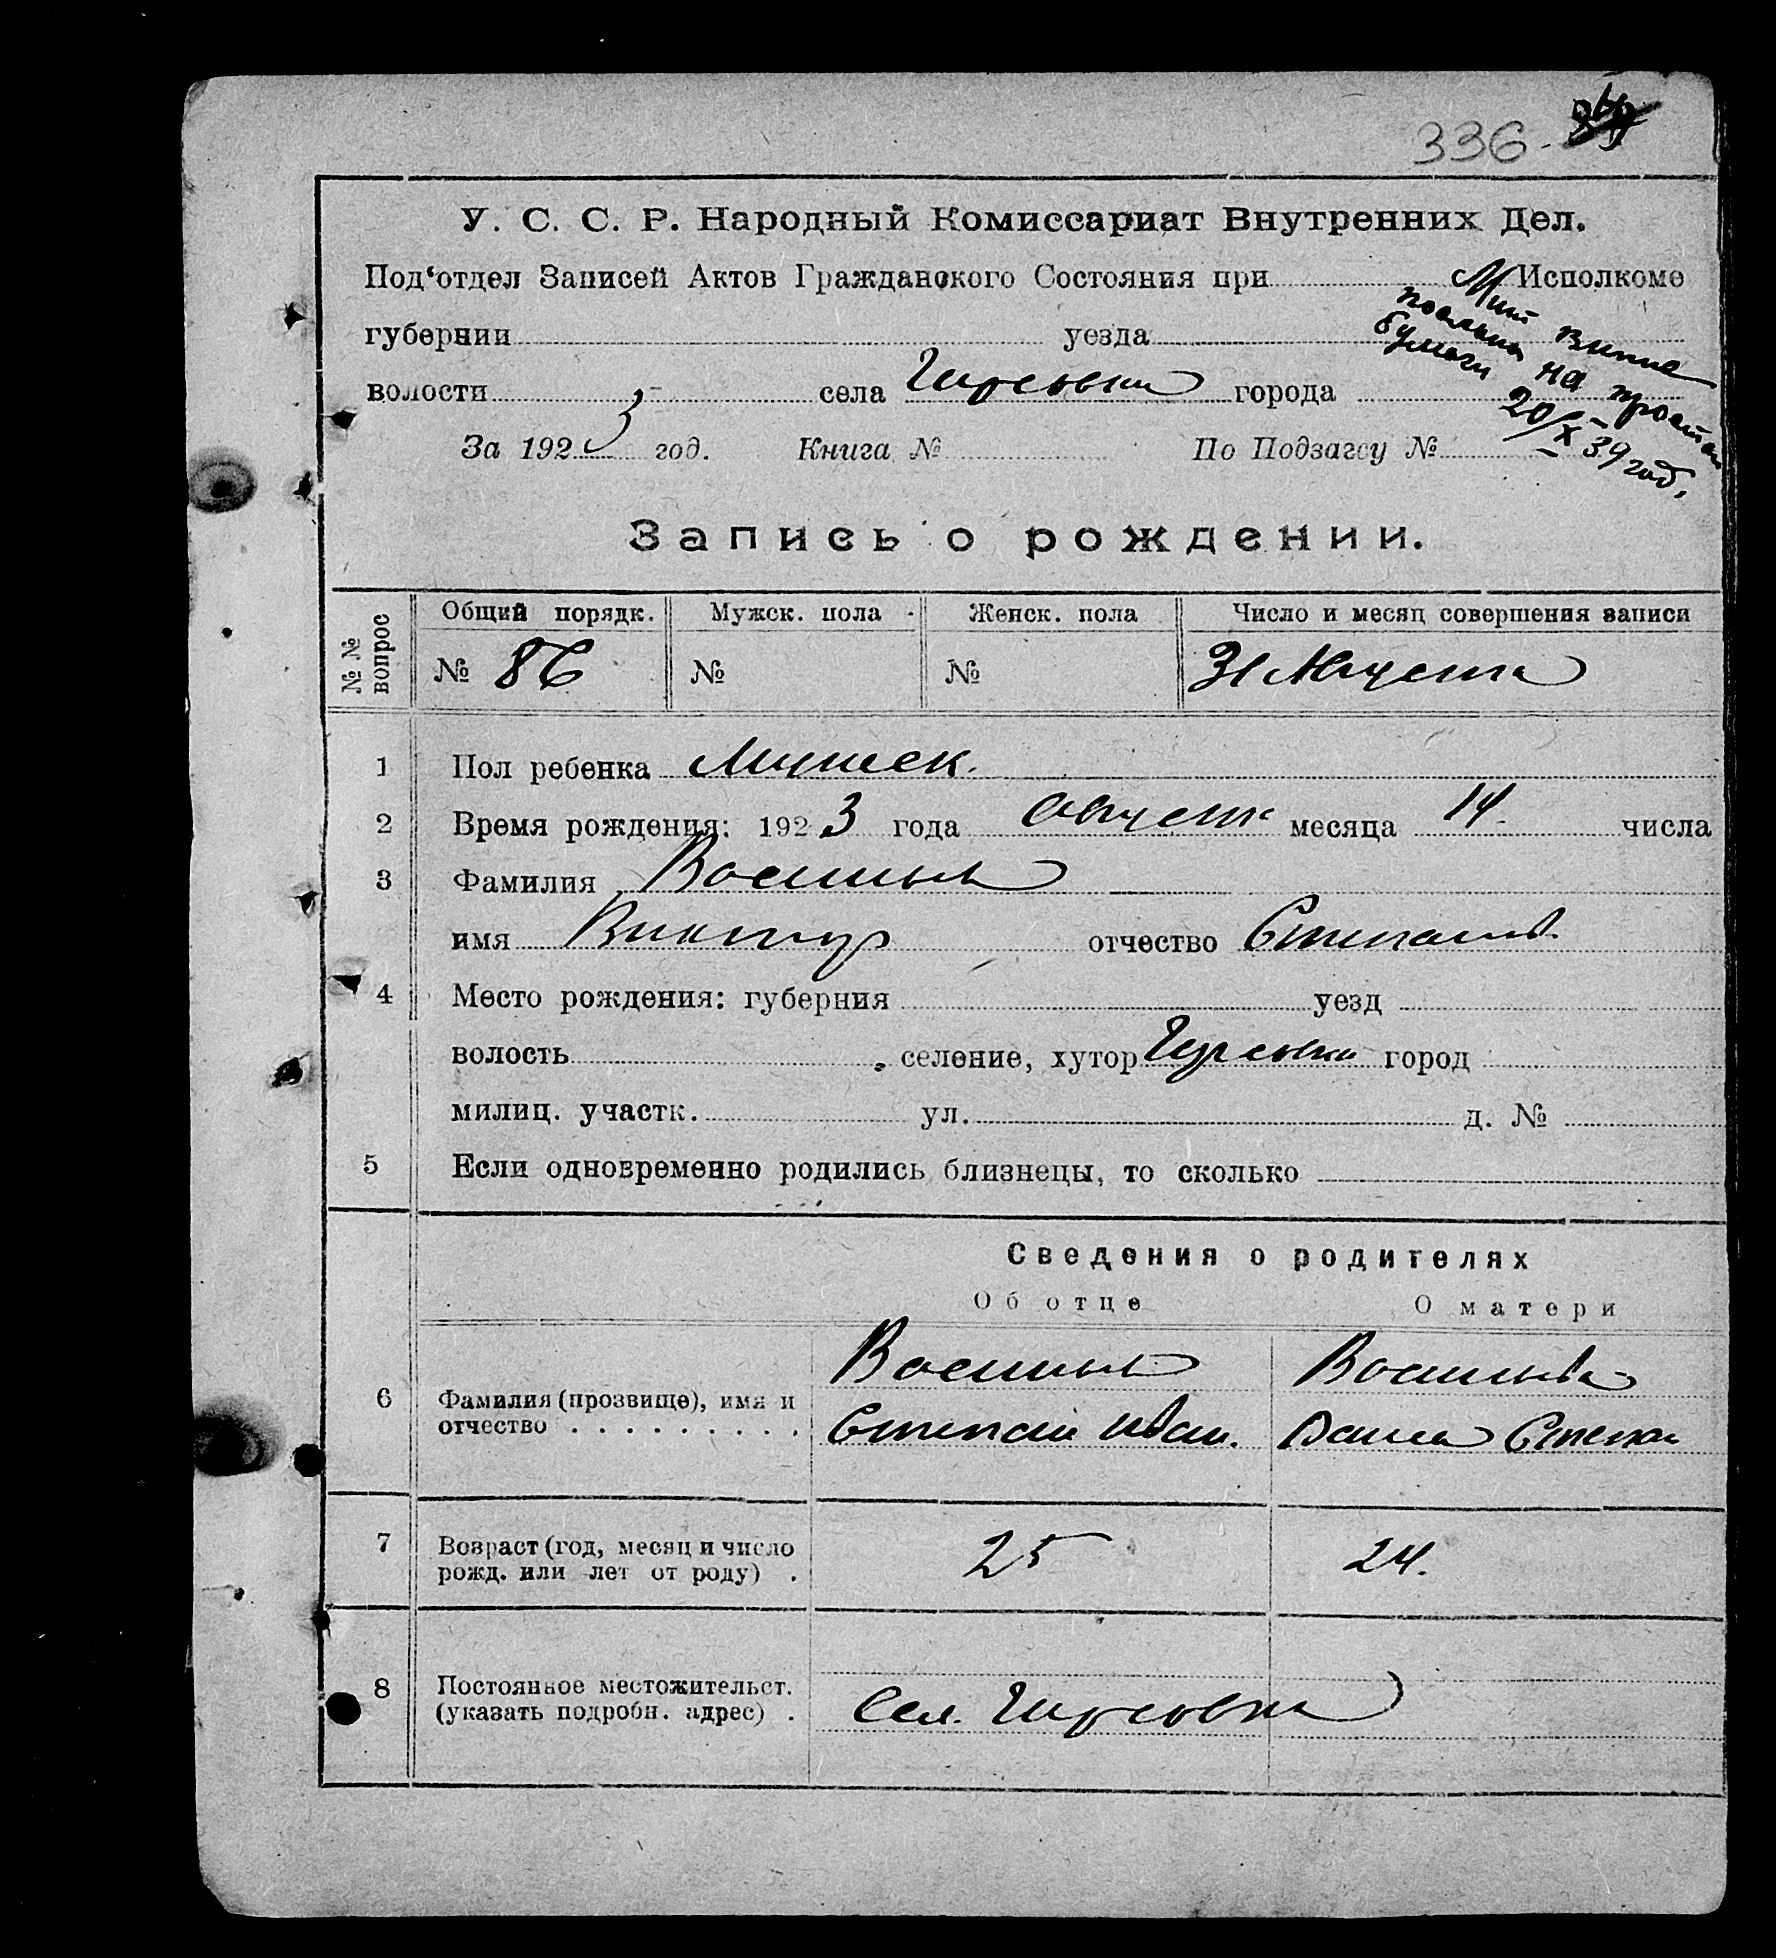 336
У. С. С. Р. Народный Комиссариат Внутренних Дел.
Под‘отдел Записей Актов Гражданского Состояния при Исполкоме
губернии уезда
волости села города
на простой
бумаги
20/X 39 год.
За 1923 год. Книга № По Подзагсу №
Запись о рождении.
№ № вопрос
Общий порядк. Мужск. пола Женск. пола Число и месяц совершения записи
№ 86 № № 31 Августа
1 Пол ребенка Мужск.
2 Время рождения: 1923 года август месяца 14 числа
3 Фамилия Васильев
имя Виктор отчество Степанов.
4 Место рождения: губерния уезд
волость селение, хутор город
милиц. участк. ул. д. №
5 Если одновременно родились близнецы, то сколько
Сведения о родителях
Об отце О матери
6 Фамилия (прозвище), имя и отчество Васильев Степан Иван. Васильева
7 Возраст (год, месяц и число рожд. или лет от роду) 25 24.
8 Постоянное местожительст. (указать подробн. адрес) Сел.